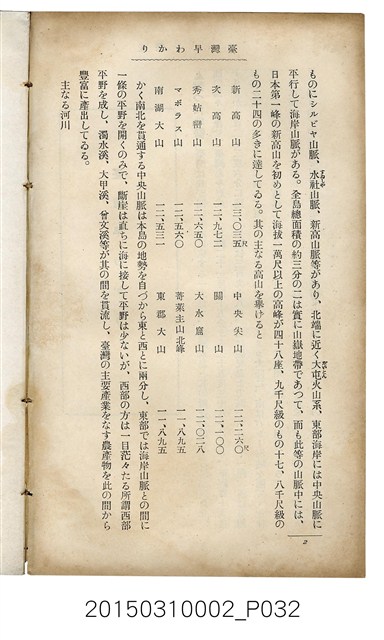 臺灣早わかり
二
ものにシルビヤ山脈、水社山脈、新高山脈等があり、北端に近く大屯火山系、東部海岸には中央山脈に
平行して海岸山脈がある。全島總面積の約三分の二は實に山嶽地帶であつて、而も此等の山脈中には、
日本第一峰の新高山を初めとして海拔一萬尺以上の高峰が四十八座、九千尺級のもの十七、八千尺級の
もの二十四の多きに達してゐる。其の主なる高山を擧けると
新高山 一三、〇三五尺 中央尖山 一二、二六〇尺
次高山 一二、九七二 關山 一二、一〇〇
秀姑巒山 一二、六五〇 大水窟山 一二、〇二八
マボラス山 一二、五六〇 蓄萊主山北峰 一一、八九五
南湖大山 一二、五三一 東郡大山 一一、八九五
かく南北を貫通する中央山脈は本島の地勢を自づから東と西とに兩分し、東部では海岸山脈との間に
一條の平野を開くのみで、斷崖は直ちに海に接して平野は少ないが、西部の方は一目茫々たる所謂西部
平野を成し、濁水溪、大甲溪、曾文溪等が其の間を貫流し、臺灣の主要產業をなす農產物を此の間から
豐富に產出してゐる。
主なる河川
20150310002_P032